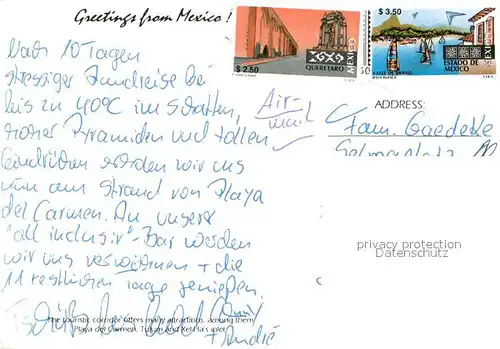 Greetings from Mexico !
$ 2.50
QUERETARO
MEXICO
$ 3.50
VALLE DE BRAVO
ESTADO DE
MEXICO
MEXICO
Nach 10 Tagen
stressiger Rundreise bei
bis zu 40°C im Schatten,
hoher Pyramiden und tollen
Eindrücken erholen wir uns
nun am Strand von Playa
del Carmen. An unserer
"all inclusiv"-Bar werden
wir uns verwöhnen + die
11 restlichen Tage genießen.
+ André
Air-
mail
ADDRESS:
Fam. Gaedeke
privacy protection
Datenschutz
The touristic corridor offers many attractions, among them
Playa del Carmen, Tulum and Xel-Ha's inlet